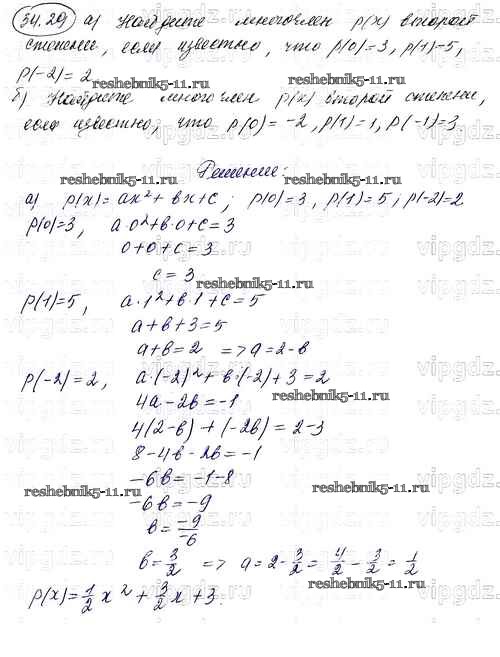 34.29 а) Найдите многочлен p(x) второй
степени, если известно, что p(0)=3, p(1)=5,
p(-2)=2
reshebnik5-11.ru reshebnik5-11.ru
б) Найдите многочлен p(x) второй степени,
если известно, что p(0)=-2, p(1)=1, p(-1)=3.
Решение:
reshebnik5-11.ru reshebnik5-11.ru
а) p(x)=ax²+bx+c; p(0)=3, p(1)=5; p(-2)=2
p(0)=3, a·0²+b·0+c=3
0+0+c=3
c=3
p(1)=5, a·1²+b·1+c=5
a+b+3=5
a+b=2 => a=2-b
p(-2)=2, a·(-2)²+b·(-2)+3=2
4a-2b=-1
reshebnik5-11.ru
4(2-b)+(-2b)=2-3
8-4b-2b=-1
-6b=-1-8
reshebnik5-11.ru reshebnik5-11.ru
-6b=-9
b=-9/-6
b=3/2 => a=2-3/2=4/2-3/2=1/2
reshebnik5-11.ru
p(x)=1/2x²+3/2x+3.